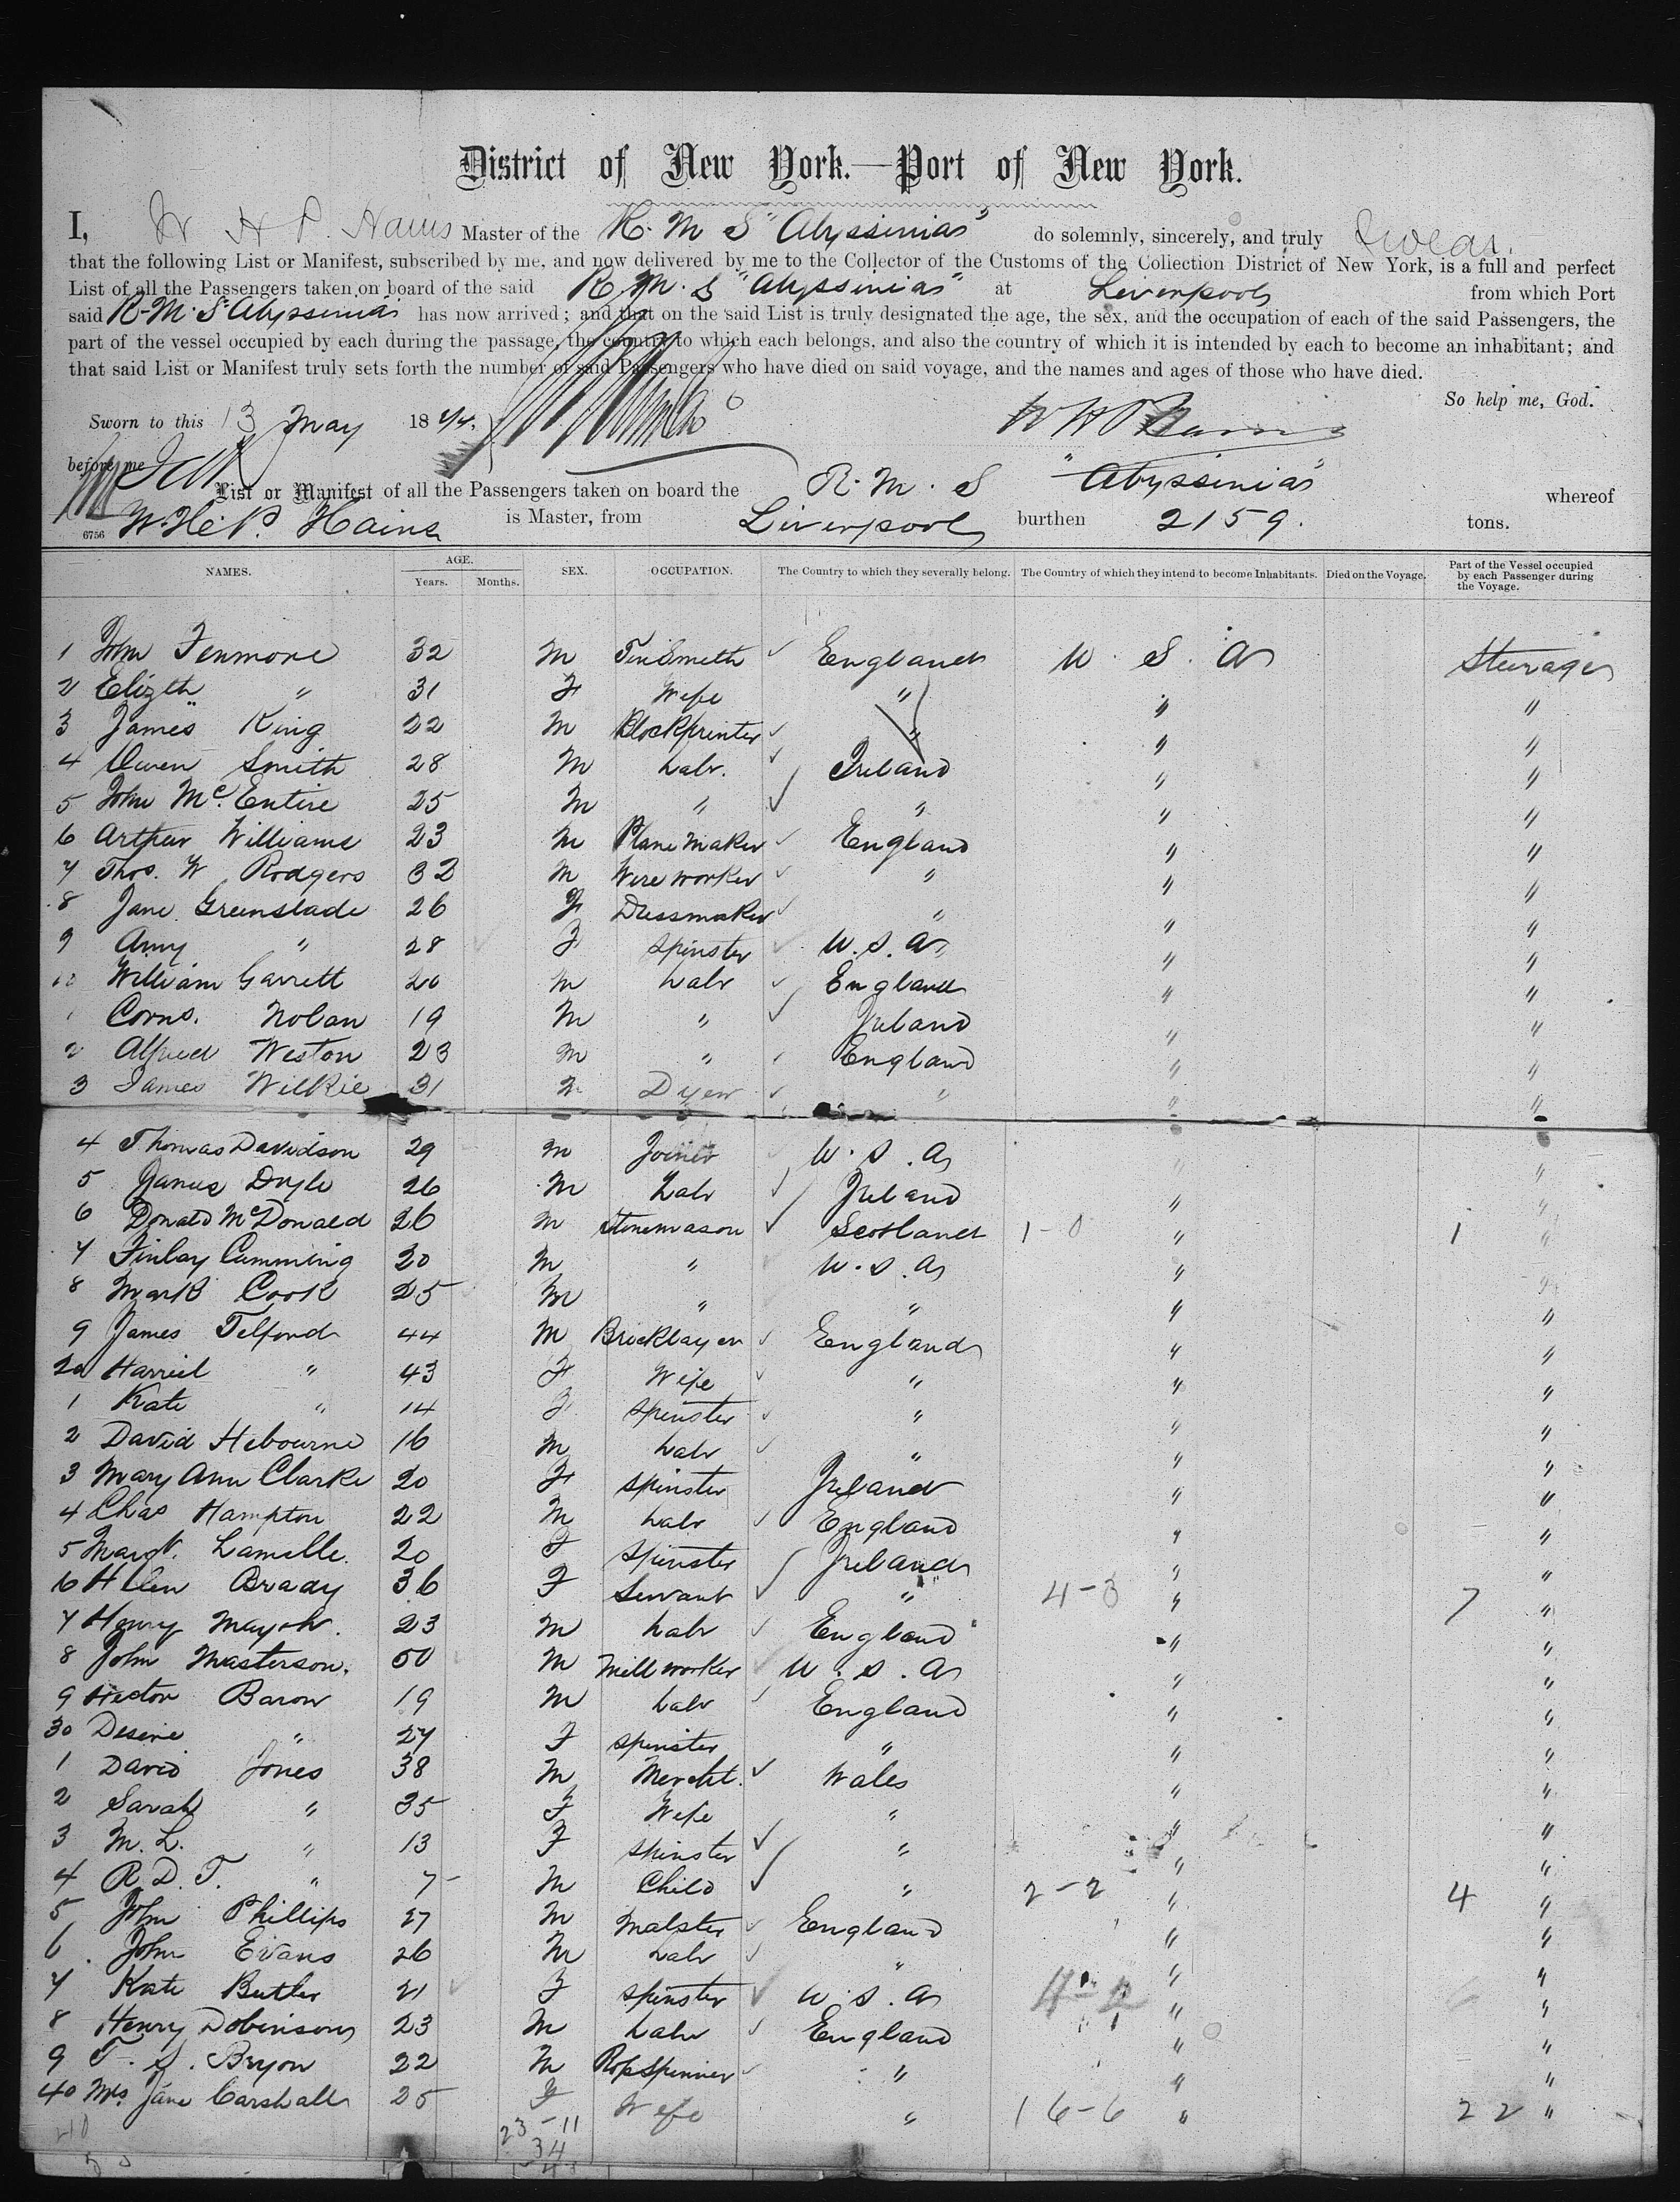 District of New York.—Port of New York.
I, W H P. Hains Master of the R. M S "Abyssinia" do solemnly, sincerely, and truly Swear.
that the following List or Manifest, subscribed by me, and now delivered by me to the Collector of the Customs of the Collection District of New York, is a full and perfect
List of all the Passengers taken on board of the said R. M. S "Abyssinia" at Liverpool from which Port
said R. M. S "Abyssinia" has now arrived; and that on the said List is truly designated the age, the sex, and the occupation of each of the said Passengers, the
part of the vessel occupied by each during the passage, the country to which each belongs, and also the country of which it is intended by each to become an inhabitant; and
that said List or Manifest truly sets forth the number of said Passengers who have died on said voyage, and the names and ages of those who have died.
So help me, God.
Sworn to this 13 May 18 74. W H P Hains
before me
List or Manifest of all the Passengers taken on board the R. M. S "Abyssinia" whereof
6756 W. H. P. Hains is Master, from Liverpool burthen 2159. tons.
NAMES. AGE. Years. Months. SEX. OCCUPATION. The Country to which they severally belong. The Country of which they intend to become Inhabitants. Died on the Voyage. Part of the Vessel occupied by each Passenger during the Voyage.
1 John Fenmore 32 M Tinsmith England U. S. A Steerage
2 Elizth " 31 F Wife " " "
3 James King 22 M Blockprinter " " "
4 Owen Smith 28 M Labr. Ireland " "
5 John Mc. Entire 25 M " " " "
6 Arthur Williams 23 M Plane maker England " "
7 Thos. W Rodgers 32 M Wire worker " " "
8 Jane Greenslade 26 F Dressmaker " " "
9 Amy " 28 F Spinster U. S. A " "
10 William Garrett 20 M Labr England " "
1 Corns. Nolan 19 M " Ireland " "
2 Alfred Weston 23 M " England " "
3 James Wilkie 31 M Dyer " " "
4 Thomas Davidson 29 M Joiner U. S. A " "
5 James Doyle 26 M Labr Ireland " "
6 Donald McDonald 26 M Stonemason Scotland 1-0 " 1 "
7 Finlay Cumming 20 M " U. S. A " "
8 Mark Cook 25 M " " " "
9 James Telford 44 M Bricklayer England " "
20 Harriet " 43 F Wife " " "
1 Kate " 14 F Spinster " " "
2 David Hebourne 16 M Labr " " "
3 Mary Ann Clarke 20 F Spinster Ireland " "
4 Chas Hampton 22 M Labr England " "
5 Margt. Lamelle. 20 F Spinster Ireland " "
6 Helen Brady 36 F Servant " 4-3 " 7 "
7 Henry Mayoh. 23 M Labr England " "
8 John Masterson. 50 M Mill worker U. S. A " "
9 Hector Baron 19 M Labr England " "
30 Desire " 27 F Spinster " " "
1 David Jones 38 M Mercht. Wales " "
2 Sarah " 35 F Wife " " "
3 M. L. " 13 F Spinster " " "
4 R. D. T. " 7 M Child " 2-2 " 4 "
5 John Phillips 27 M Malster England " "
6 John Evans 26 M Labr " " "
7 Kate Butler 21 F Spinster U. S. A " "
8 Henry Dobinson 23 M Labr England " "
9 T. S. Bryon 22 M Rop Spinner " " "
40 Mrs. Jane Carshall 25 F Wife " 16-6 " 22 "
23-11
34